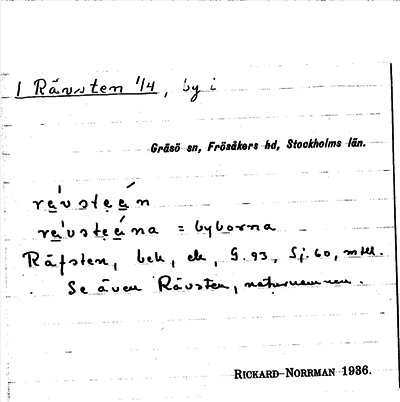 1 Rävsten 1/4, by i
Gräsö sn, Frösåkers hd, Stockholms län.
rä́vste̱án
rä́vste̱ána = byborna
Räfsten, bek, ek, G. 93, Sj. 60, mtl.
Se även Rävsten, naturnamnen.
RICKARD NORRMAN 1936.